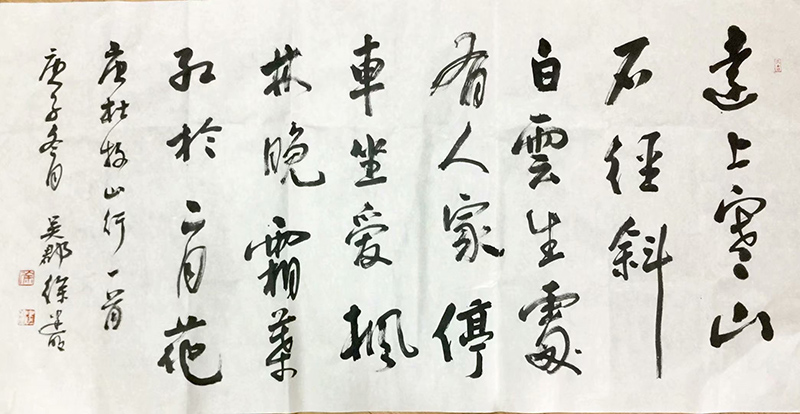 遠上寒山
石徑斜
白雲生處
有人家停
車坐愛楓
林晚霜葉
紅於二月花
唐杜牧山行一首
庚子冬月 吴郡徐